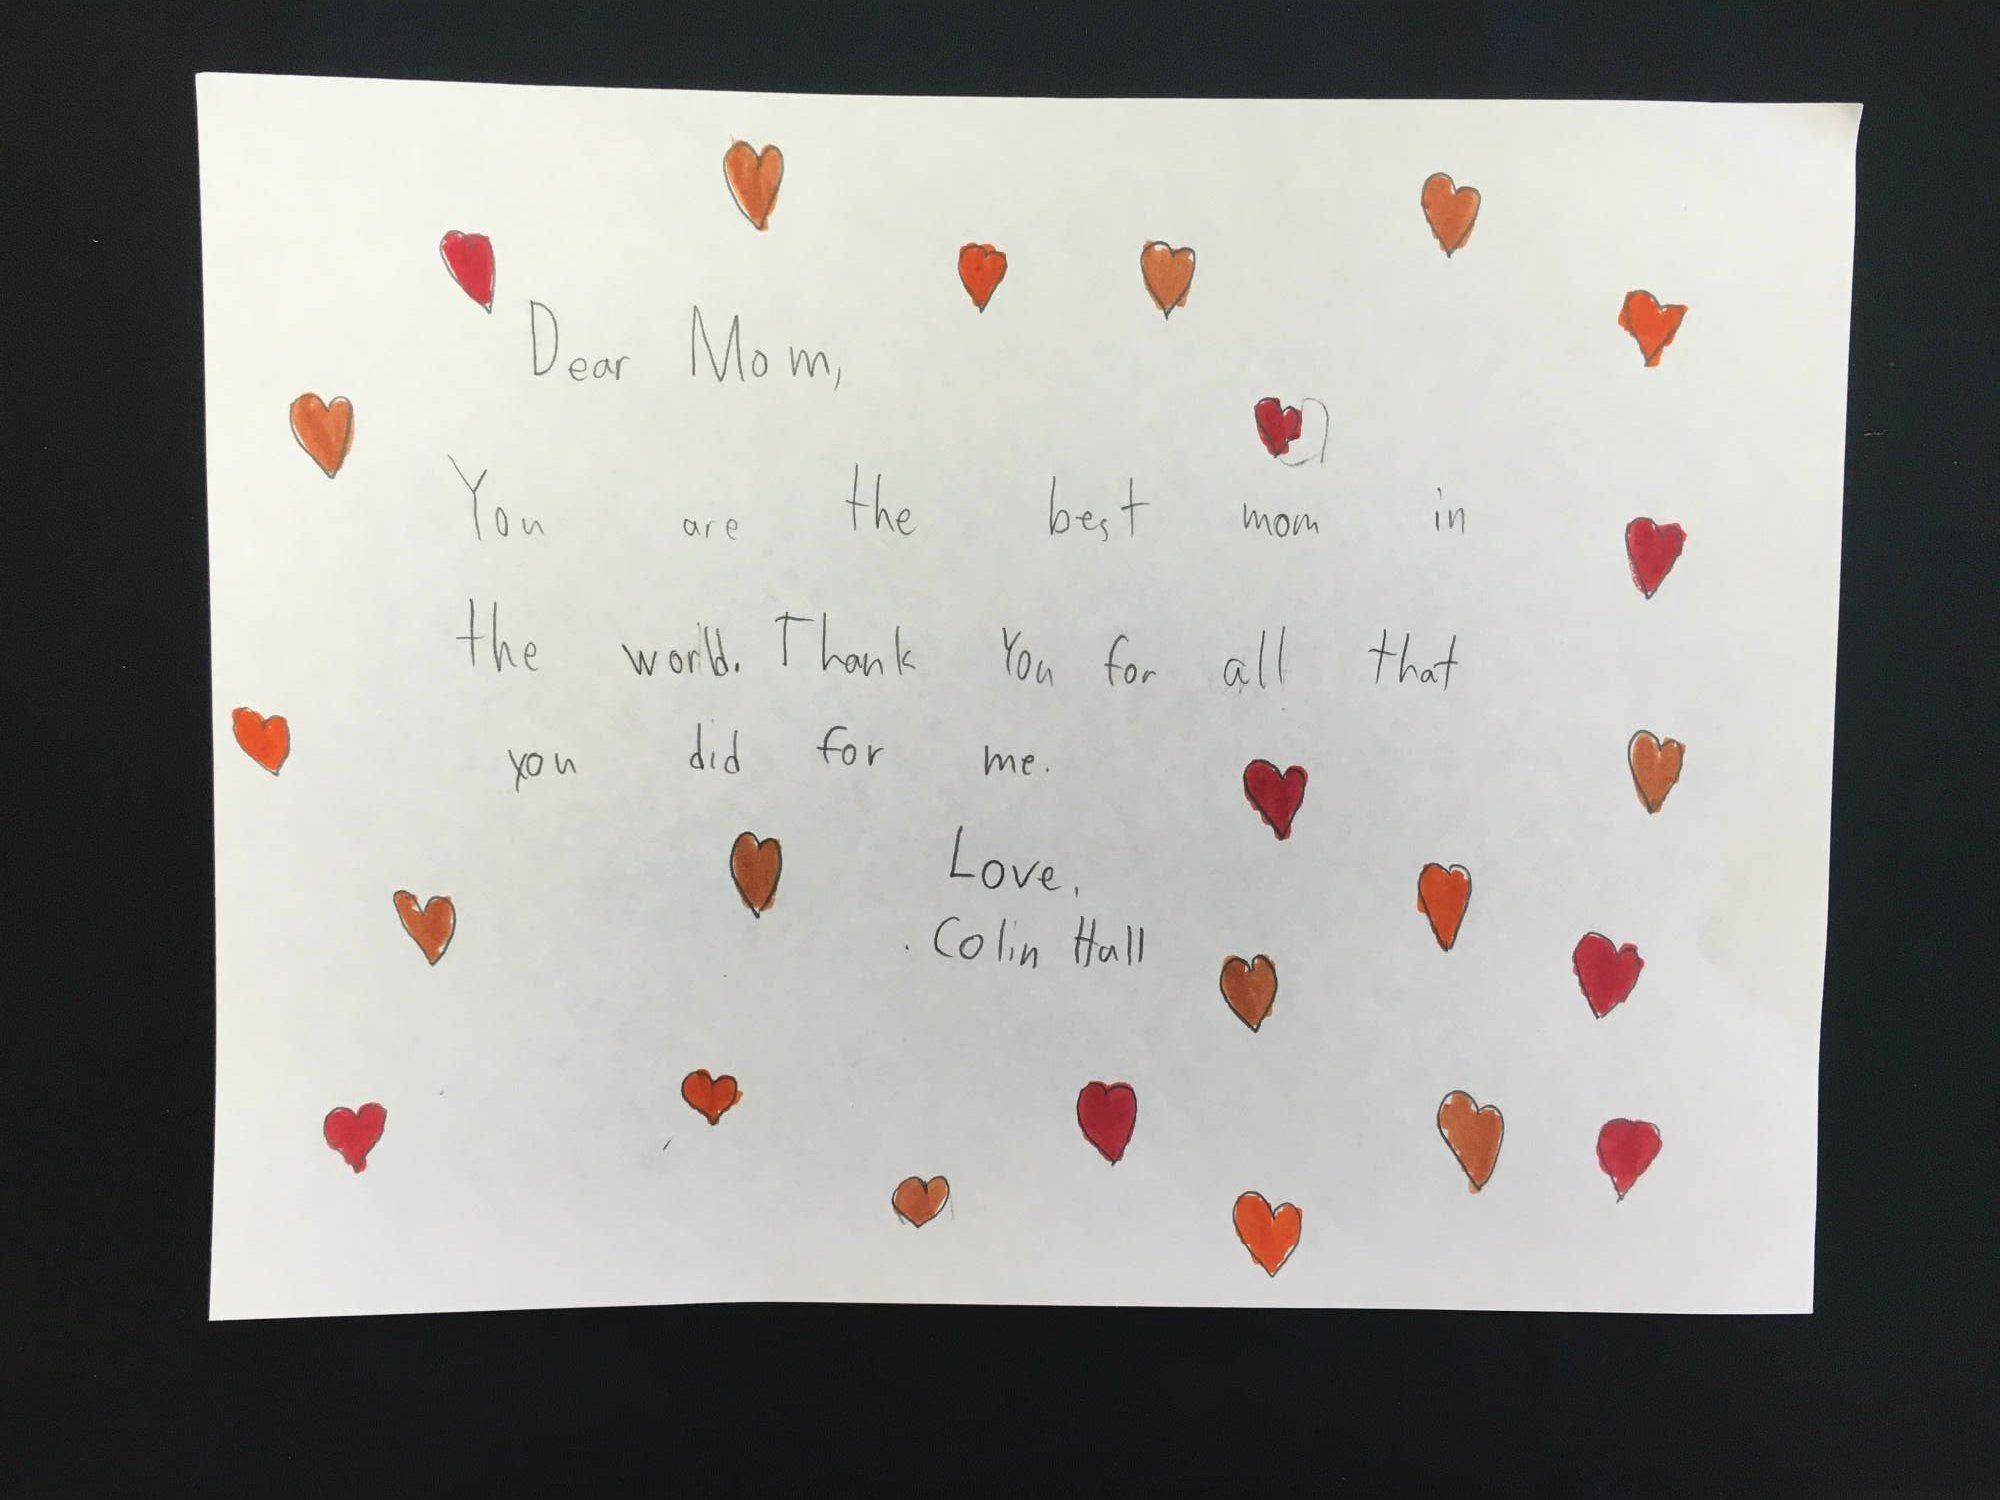 Dear Mom,
You are the best mom in
the world. Thank You for all that
you did for me.
Love,
Colin Hall